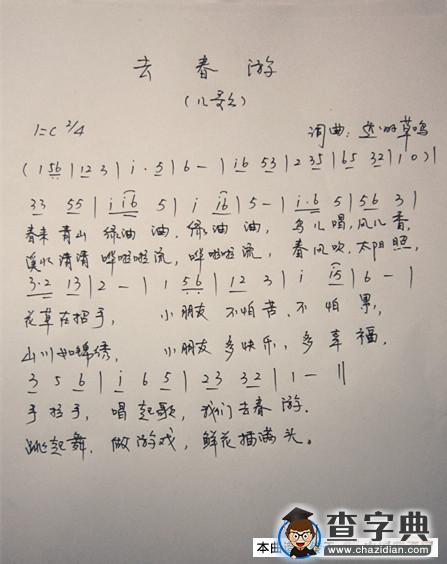 去春游
(儿歌)
1=C 2/4 词曲:草鸣
(1 56 | 12 3 | i · 5 | 6 - | i6 53 | 2 35 | 65 32 | 1 0) |
33 55 | i i6 5 | i i6 | 5 - | i·6 5 | 56 3 |
春来青山绿油油,绿油油,鸟儿唱,风儿香,
溪水清清哗啦啦流,哗啦啦流,春风吹,太阳照,
3·2 13 | 2 - | 1 56 | 12 3 | i i5 | 6 - |
花草在招手,小朋友不怕苦,不怕累,
山川如锦绣,小朋友多快乐,多幸福,
3 5 6 | i 6 5 | 23 32 | 1 - ‖
手招手,唱起歌,我们去春游.
跳起舞,做游戏,鲜花插满头。
本曲
查字典
www.chazidian.com